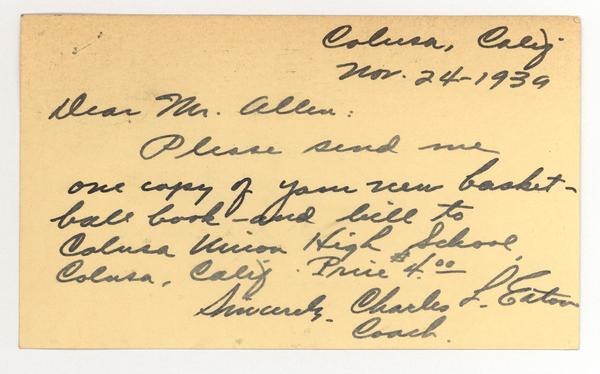 Colusa, Calif
Nov. 24-1939
Dear Mr. Allen:
Please send me
one copy of your new basket-
ball book - and bill to
Colusa Union High School,
Colusa, Calif. Price $4.00
Sincerely, Charles L. Eaton
Coach.